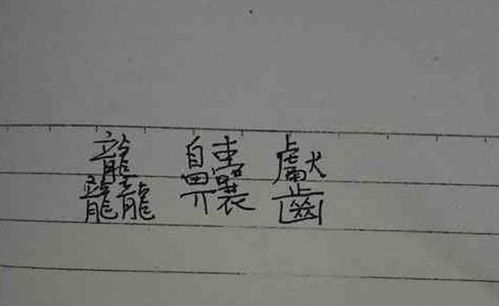 龘齉齾